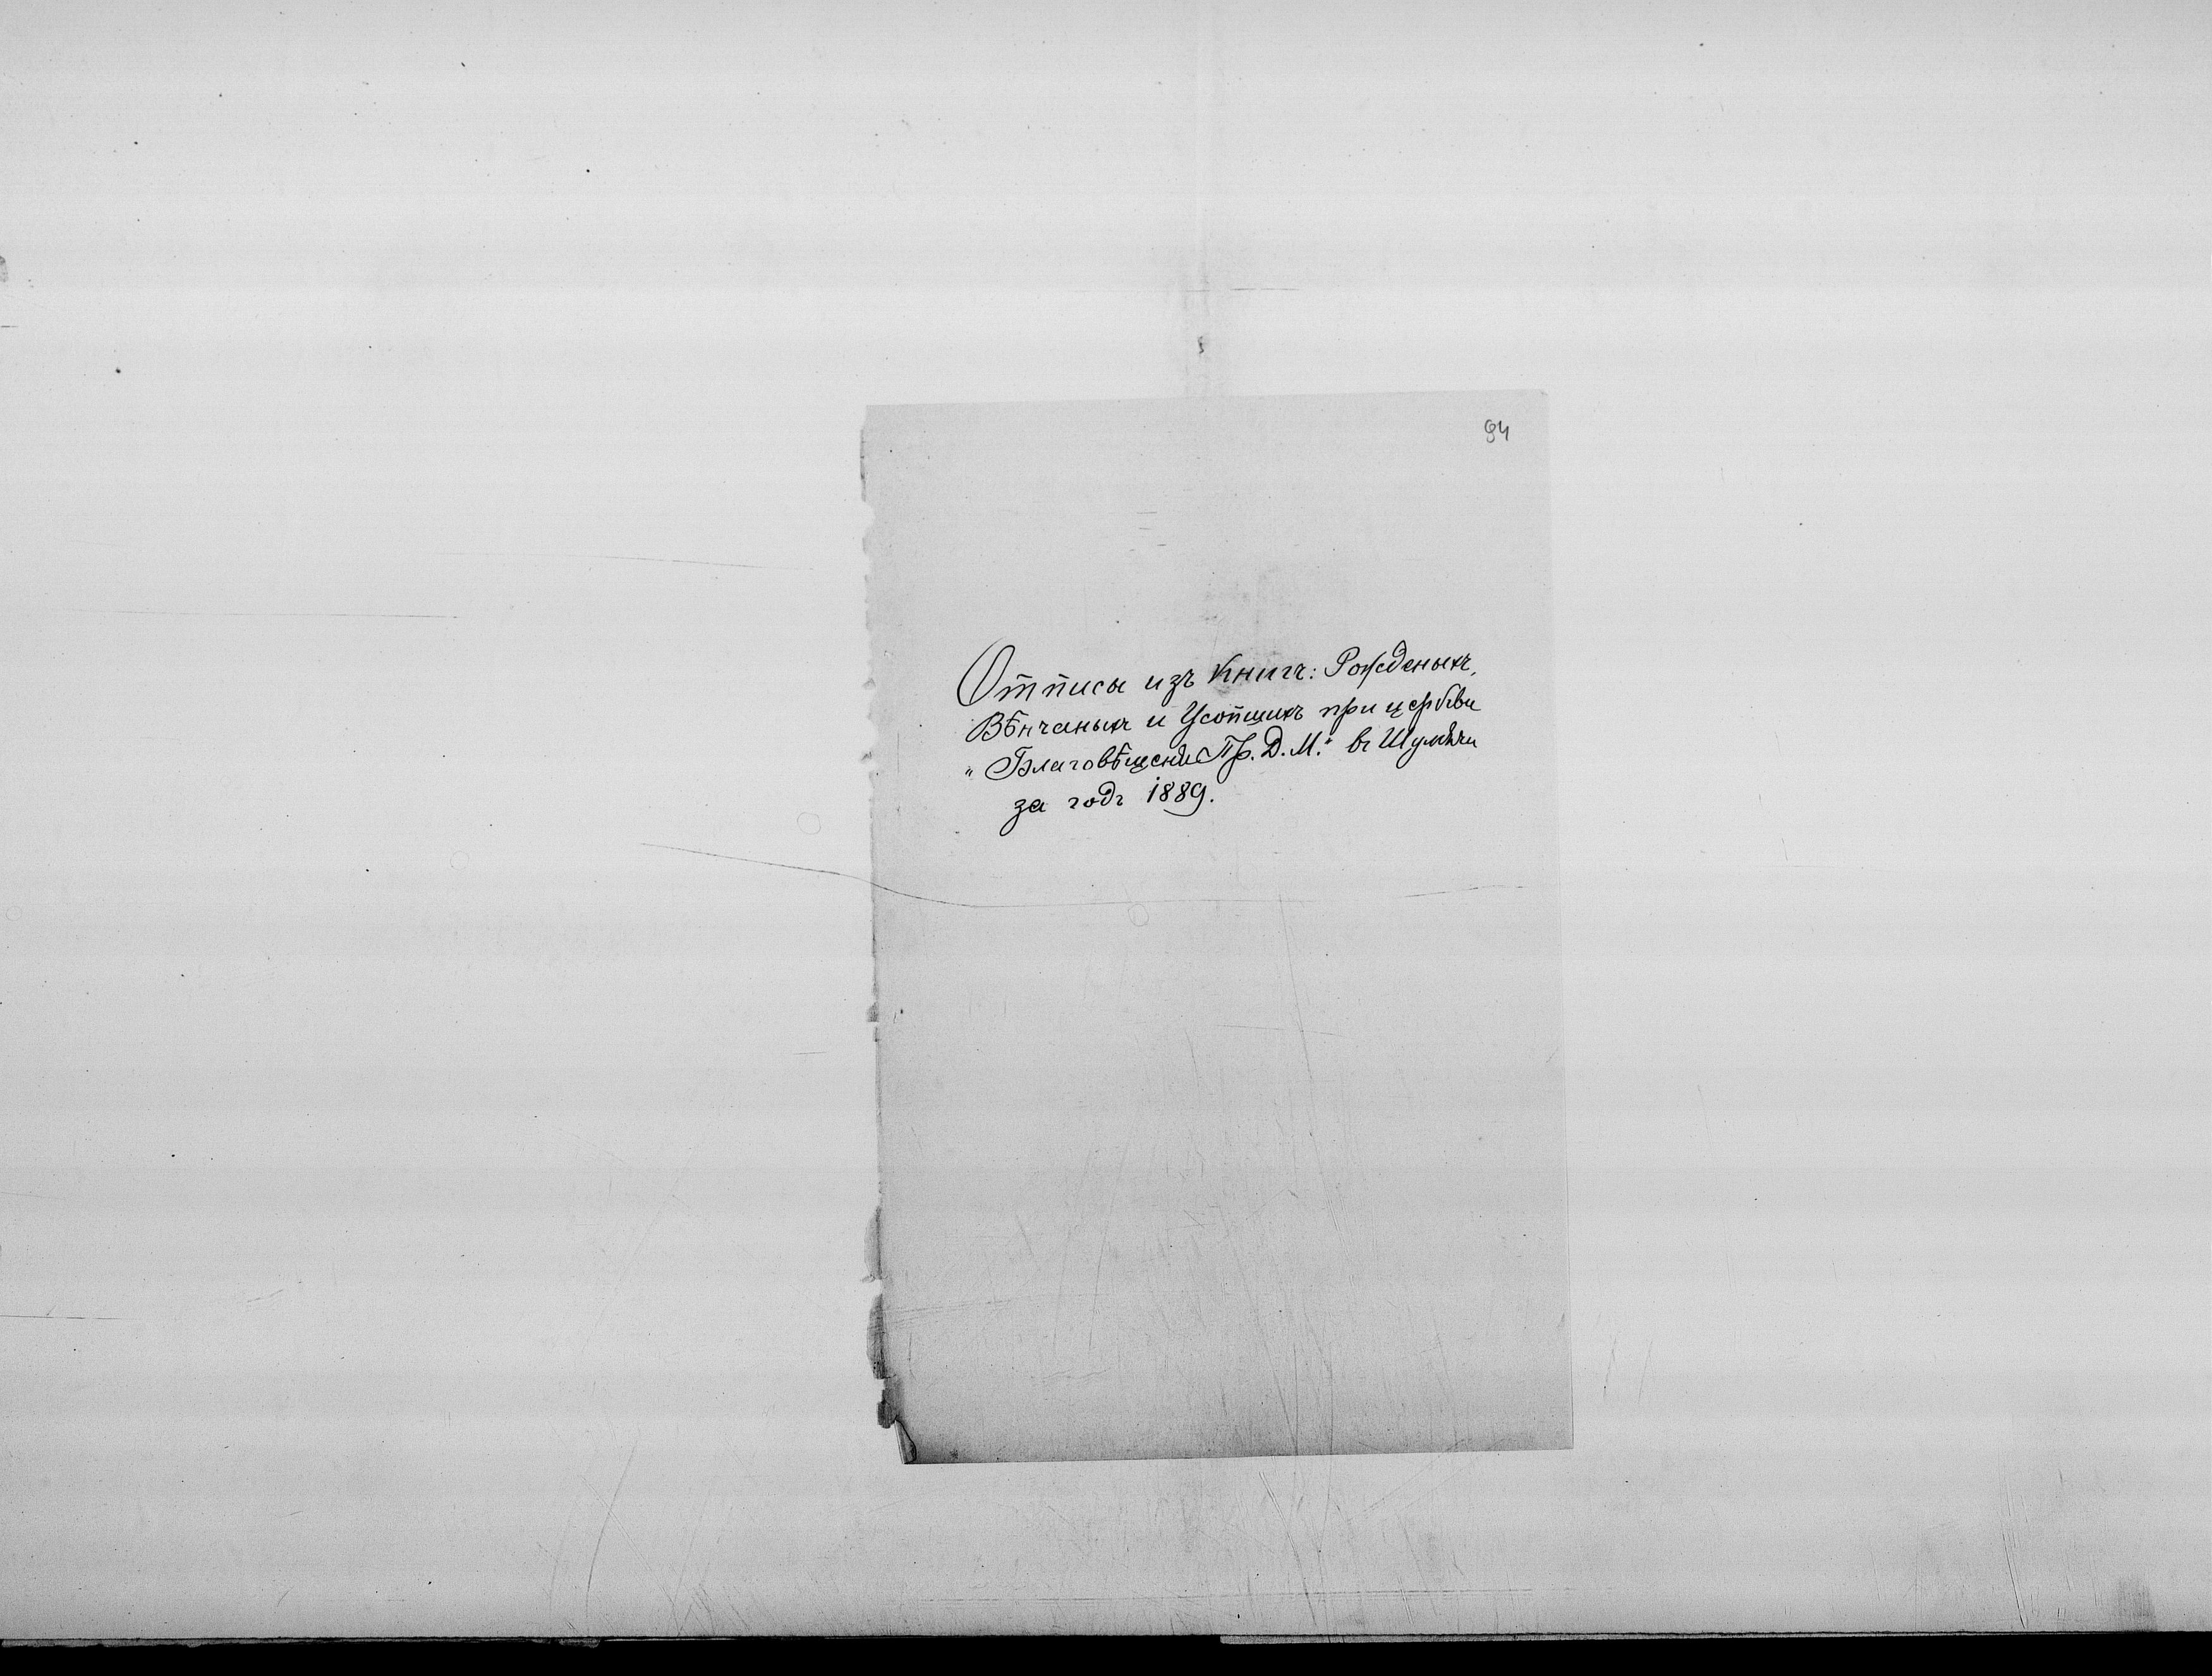 94
Отписы изъ Книгъ: Рожденыхъ,
Вѣнчаныхъ и Усопшихъ при церкви
„Благовѣщенія Пр. Д. М." въ Шумлячи
за годъ 1889.